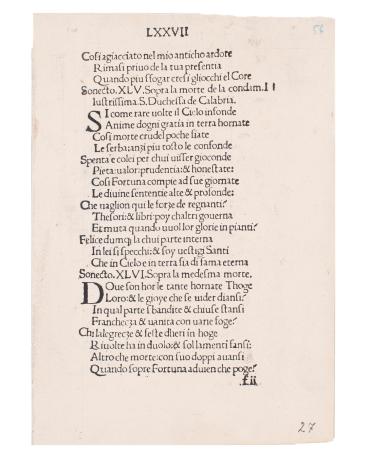 LXXVII
56
Cosi agiacciato nel mio anticho ardore
Rimasi priuo de la tua presentia
Quando piu sfogar cresi gliocchi el Core
Sonecto. XLV. Sopra la morte de la condam. Il
lustrissima. S. Duchessa de Calabria.
SI come rare uolte il Cielo infonde
Anime dogni gratia in terra hornate
Cosi morte crudel poche fiate
Le serba: anzi piu tosto le confonde
Spenta e colei per chui uisser gioconde
Pieta: ualor: prudentia: & honestate:
Cosi Fortuna compie ad sue giornate
Le diuine sententie alte & profonde:
Che uaglion qui le forze de regnanti?
Thesori: & libri: poy chaltri gouerna
Et muta quando uuol lor glorie in pianti?
Felice dumq; la chui parte interna
In lei si specchi: & suy uestigi Santi
Che in Cielo e in terra sia di fama eterna
Sonecto. XLVI. Sopra la medesma morte.
DOue son hor le tante hornate Thoge
Loro: & le gioye che se uider dianzi?
In qual parte sbandite & chiuse stansi
Franchezza & uanita con uarie foge?
Chi lalegrezze & feste dheri in hoge
Riuolte ha in duolo: & sol lamenti fansi:
Altro che morte: con suo doppi auansi
Quando sopre Fortuna aduien che poge?
fii
27